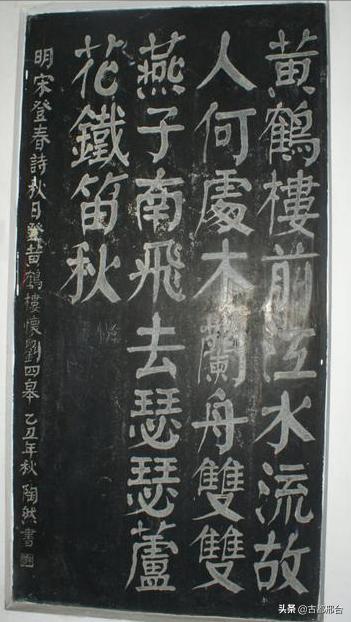 黄鶴樓前江水流故
人何處木蘭舟雙雙
燕子南飛去瑟瑟蘆
花鐵笛秋
明宋登春詩秋日登黄鶴樓懷劉四皋 乙丑年秋 陶然書
头条 @古都邢台